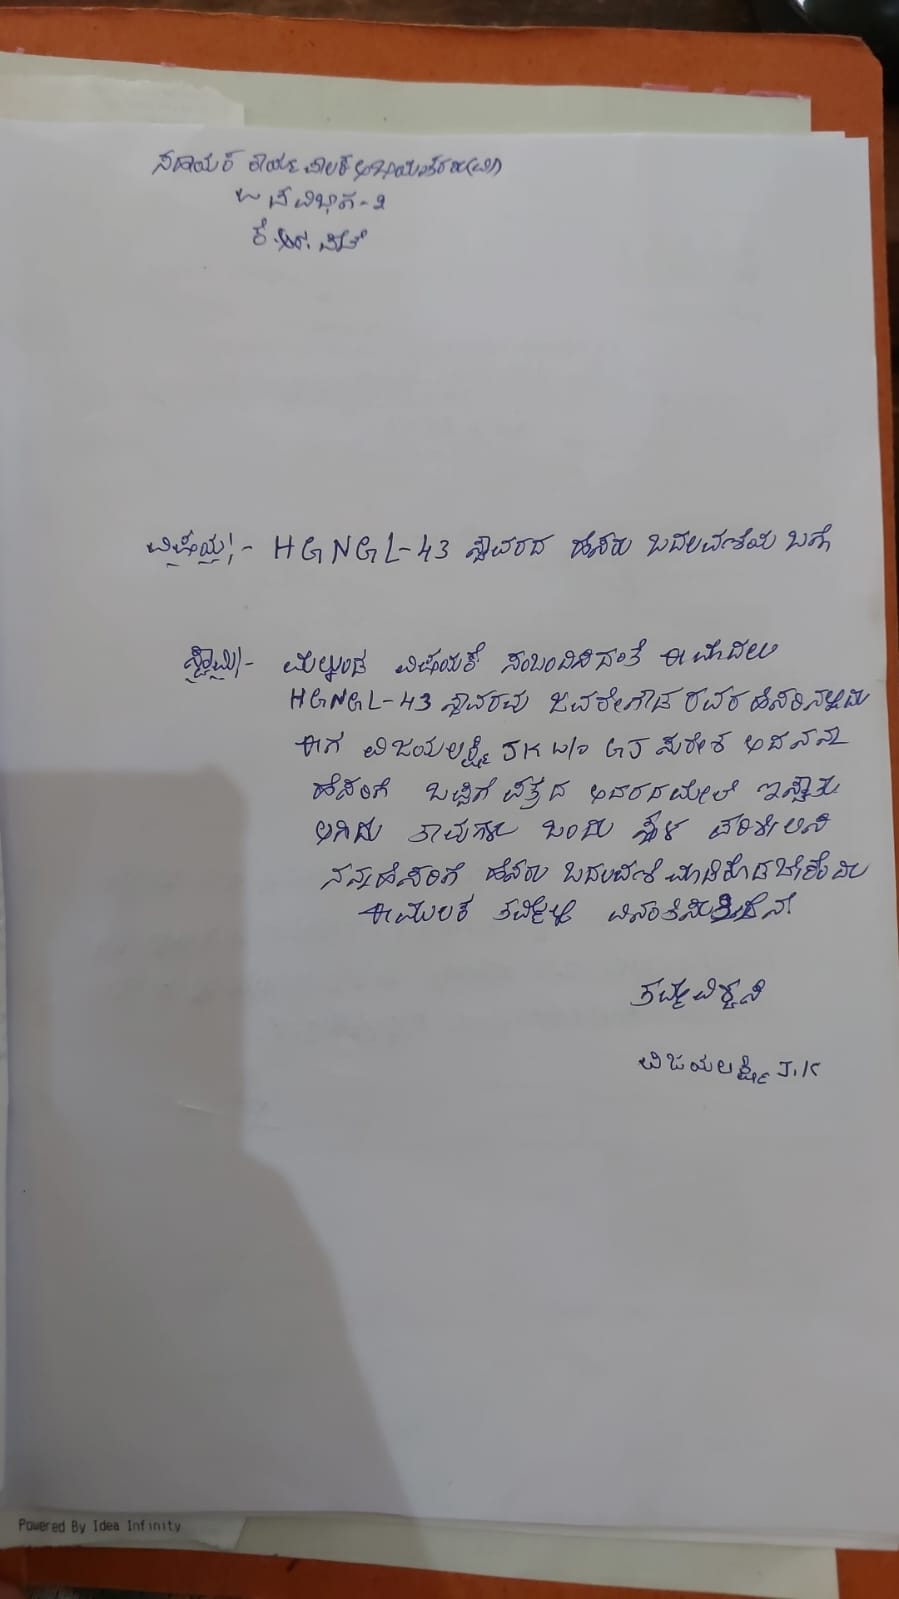 ಸಹಾಯಕ ಕಾರ್ಯಪಾಲಕ ಅಭಿಯಂತರರು(ವಿ)
ಉಪವಿಭಾಗ-೨
ಕೆ.ಆರ್. ಪೇಟೆ
ವಿಷಯ:- HGNGL-43 ಸ್ಥಾವರದ ಹೆಸರು ಬದಲಾವಣೆಯ ಬಗ್ಗೆ
ಸ್ವಾಮಿ:- ಮೇಲ್ಕಂಡ ವಿಷಯಕ್ಕೆ ಸಂಬಂದಿಸಿದಂತೆ ಈ ಮೊದಲು
HGNGL-43 ಸ್ಥಾವರವು ಜವರೇಗೌಡ ರವರ ಹೆಸರಿನಲ್ಲಿದ್ದು
ಈಗ ವಿಜಯಲಕ್ಷ್ಮಿ JK W/o GJ ಸುರೇಶ ಅದನನ್ನು
ಹೆಸರಿಗೆ ಒಪ್ಪಿಗೆ ಪತ್ರದ ಆದಾರದ ಮೇಲೆ
ಆಗಿದ್ದು ತಾವುಗಳು ಒಂದು ಸ್ಥಳ ಪರಿಶೀಲಿಸಿ
ನನ್ನ ಹೆಸರಿಗೆ ಹೆಸರು ಬದಲಾವಣೆ ಮಾಡಿಕೊಡಬೇಕೆಂದು
ಈ ಮೂಲಕ ತಮ್ಮಲ್ಲಿ ವಿನಂತಿಸುತ್ತಿದ್ದೇನೆ
ತಮ್ಮ ವಿಶ್ವಾಸಿ
ವಿಜಯಲಕ್ಷ್ಮಿ J.K
Powered By Idea Infinity